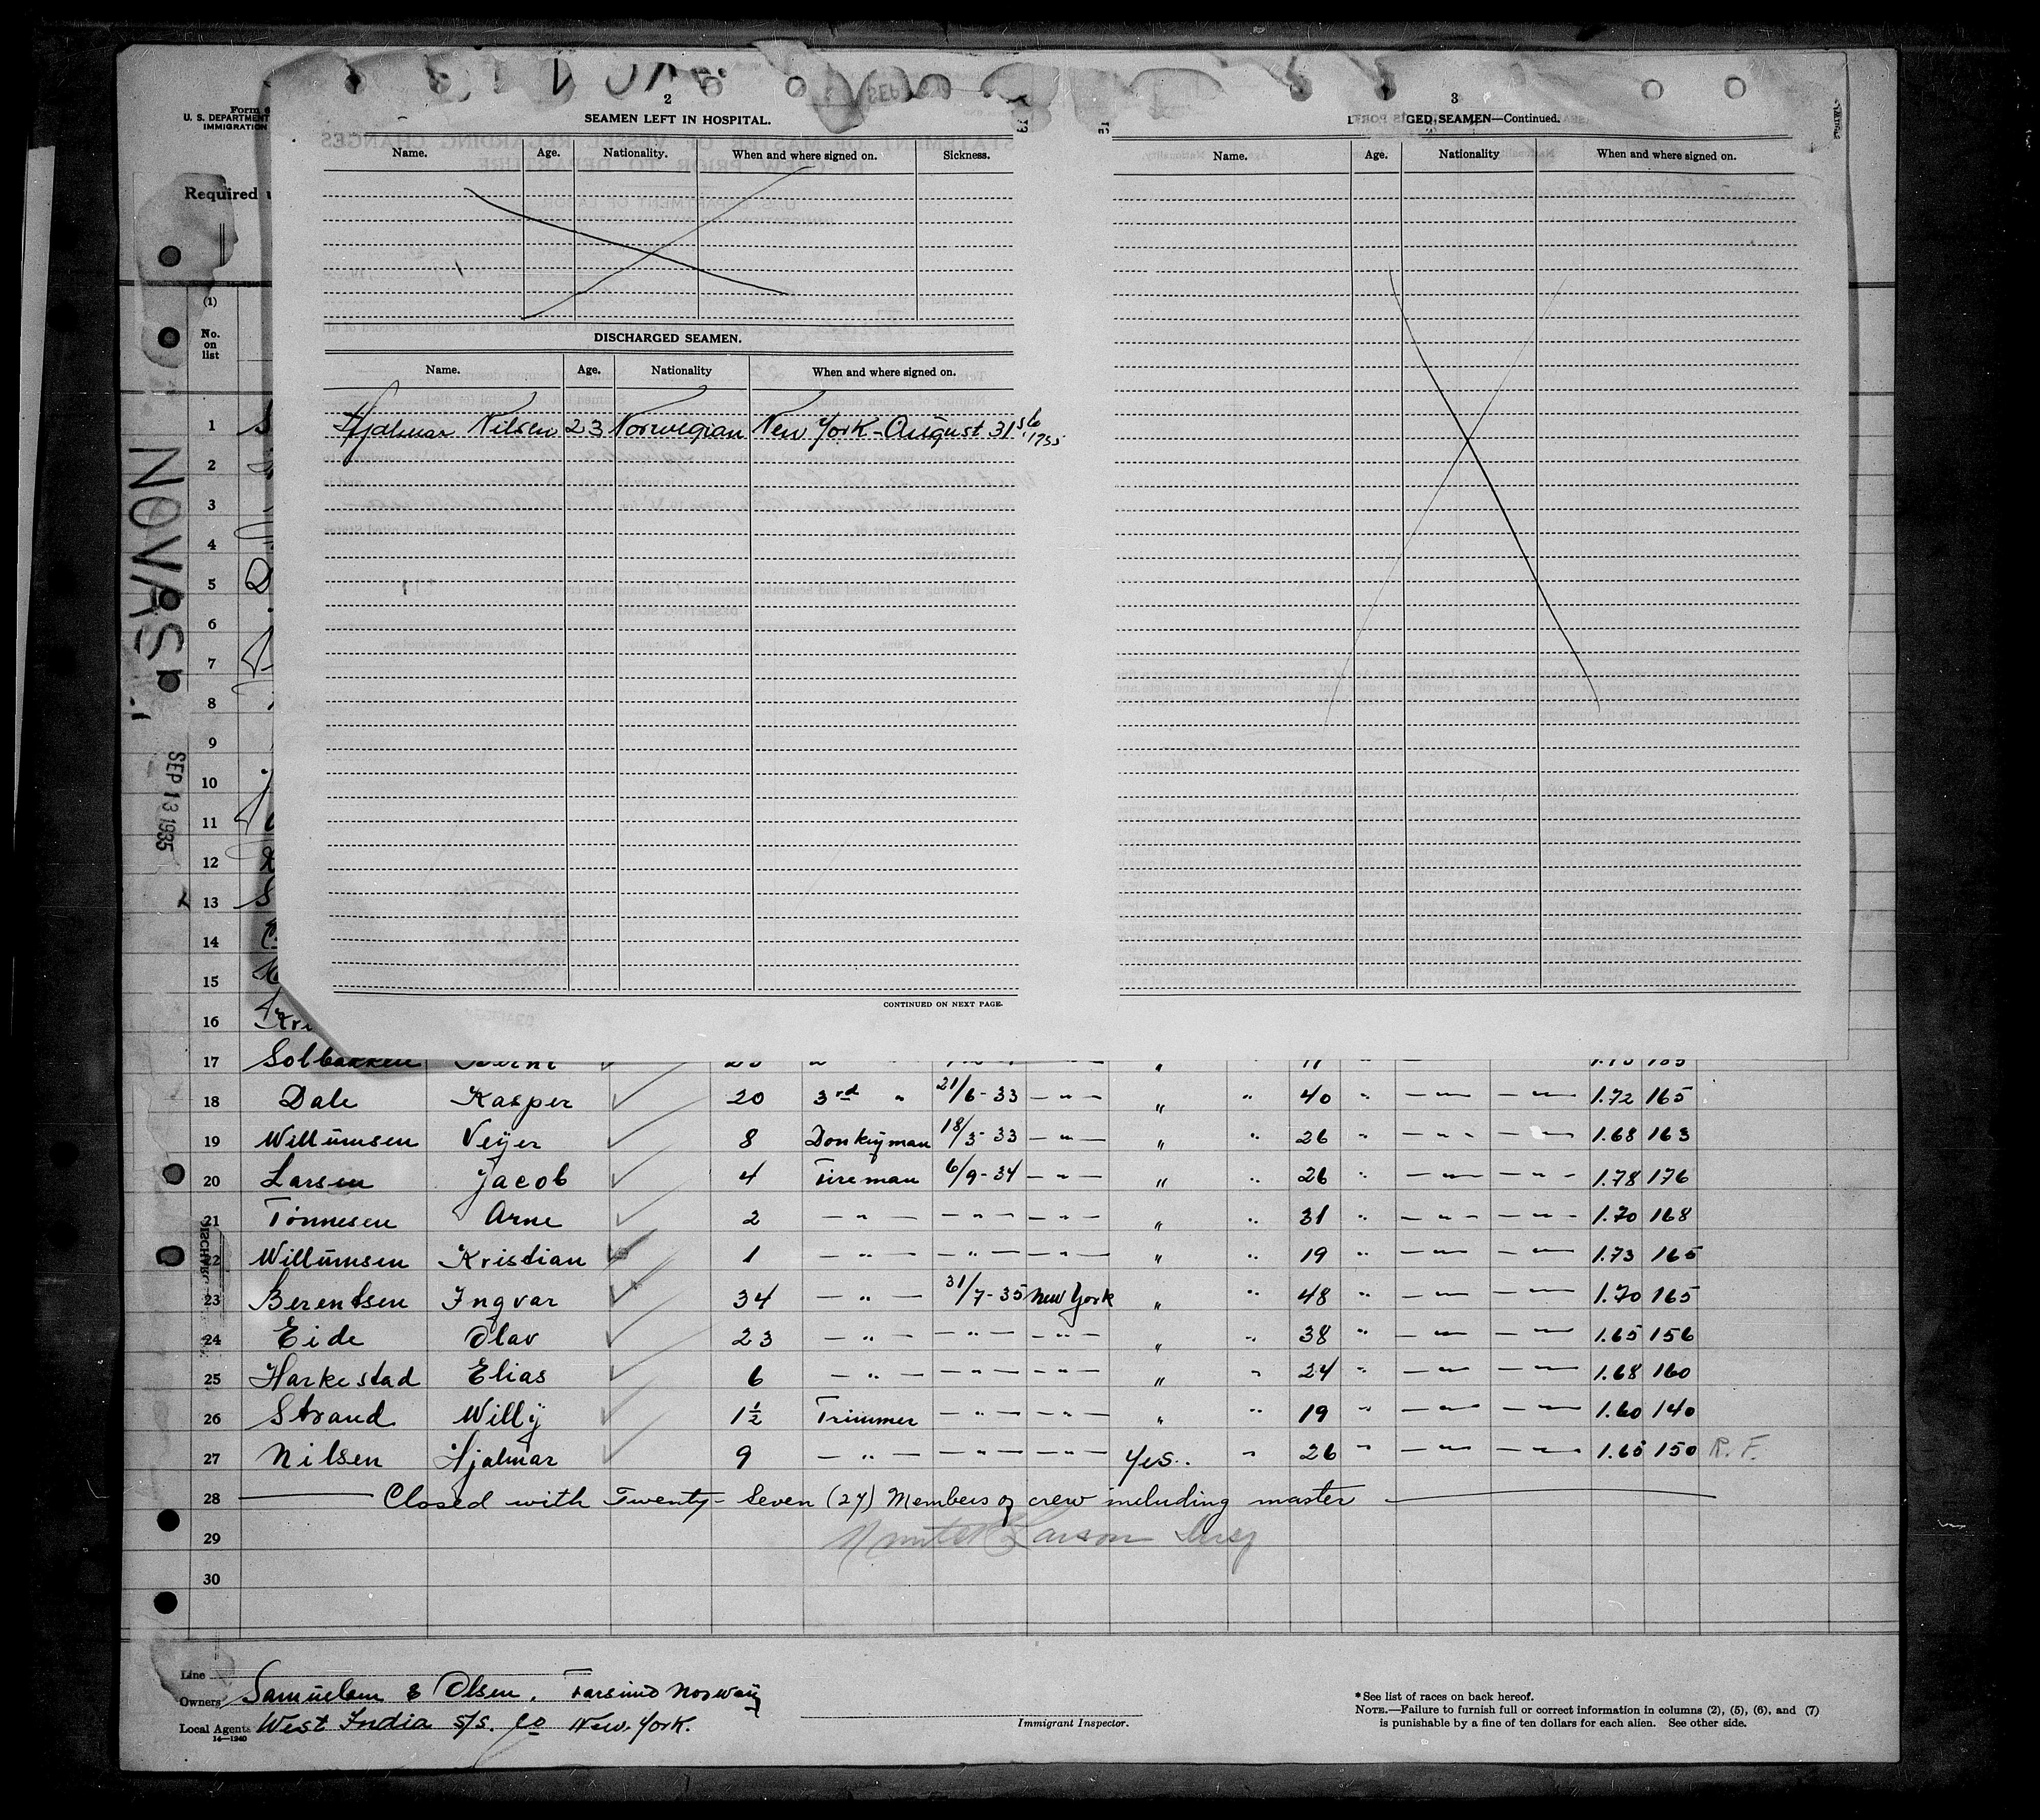 Form 6
U. S. DEPARTMENT
IMMIGRATION
Required
2
SEAMEN LEFT IN HOSPITAL.
Name. Age. Nationality. When and where signed on. Sickness.
DISCHARGED SEAMEN.
Name. Age. Nationality When and where signed on.
Hjalmar Nilsen 23 Norwegian New York - August 31st 1935
CONTINUED ON NEXT PAGE.
3
GED SEAMEN—Continued.
Name. Age. Nationality When and where signed on.
(1)
No. on list
NOVASLI
SEP 13 1935
1
2
3
4
5
6
7
8
9
10
11
12
13
14
15
16 Kri
17 Solbakken
18 Dale Kasper 20 3rd " 21/6-33 — " — " " 40 " — " — — " — 1.72 165
19 Willumsen Veijer 8 Donkeyman 18/3-33 — " — " " 26 " — " — — " — 1.68 163
20 Larsen Jacob 4 Fireman 6/9-34 — " — " " 26 " — " — — " — 1.78 176
21 Tönnesen Arne 2 — " — — " — — " — " " 31 " — " — — " — 1.70 168
22 Willumsen Kristian 1 — " — — " — — " — " " 19 " — " — — " — 1.73 165
23 Berentsen Ingvar 34 — " — 31/7-35 New York " " 48 " — " — — " — 1.70 165
24 Eide Olav 23 — " — — " — — " — " " 38 " — " — — " — 1.65 156
25 Harkestad Elias 6 — " — — " — — " — " " 24 " — " — — " — 1.68 160
26 Strand Willy 1½ Trimmer — " — — " — " " 19 " — " — — " — 1.60 140
27 Nilsen Hjalmar 9 — " — — " — — " — Yes. " 26 " — " — — " — 1.65 150 R. F.
28 Closed with Twenty-Seven (27) Members of crew including master
29 Larson Insp
30
Line
Owners Samuelsen & Olsen. Farsund Norway
Local Agents West India S/S. Co New. York.
14—1240
Immigrant Inspector.
* See list of races on back hereof.
NOTE.—Failure to furnish full or correct information in columns (2), (5), (6), and (7)
is punishable by a fine of ten dollars for each alien. See other side.